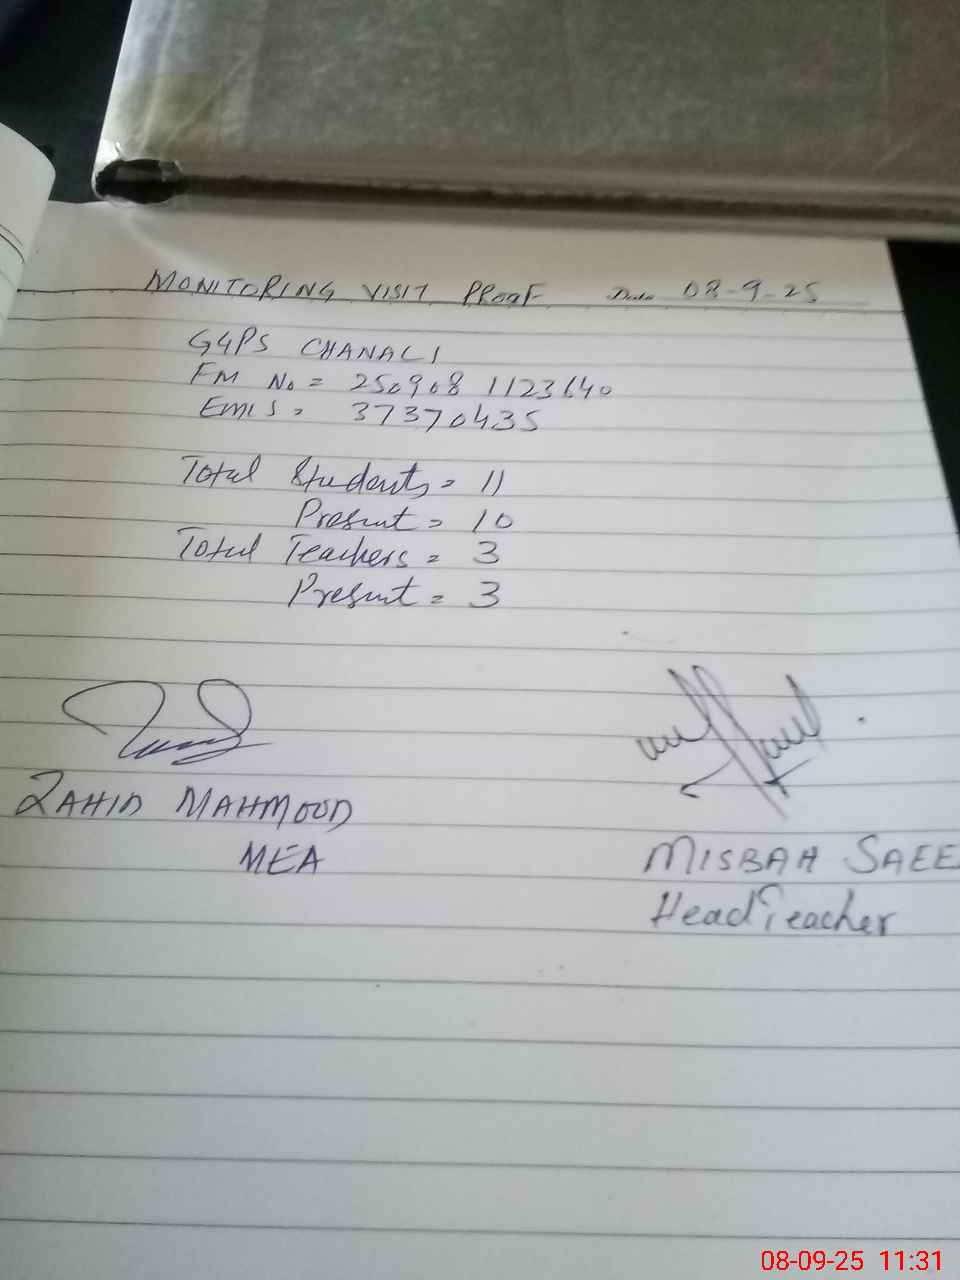 MONITORING VISIT PROOF Date 08-9-25
GGPS CHANALI
FM No = 250908 1123640
EMIS = 37370435
Total Students = 11
Present = 10
Total Teachers = 3
Present = 3
ZAHID MAHMOOD
MEA
MISBAH SAEE
Head Teacher
08-09-25 11:31